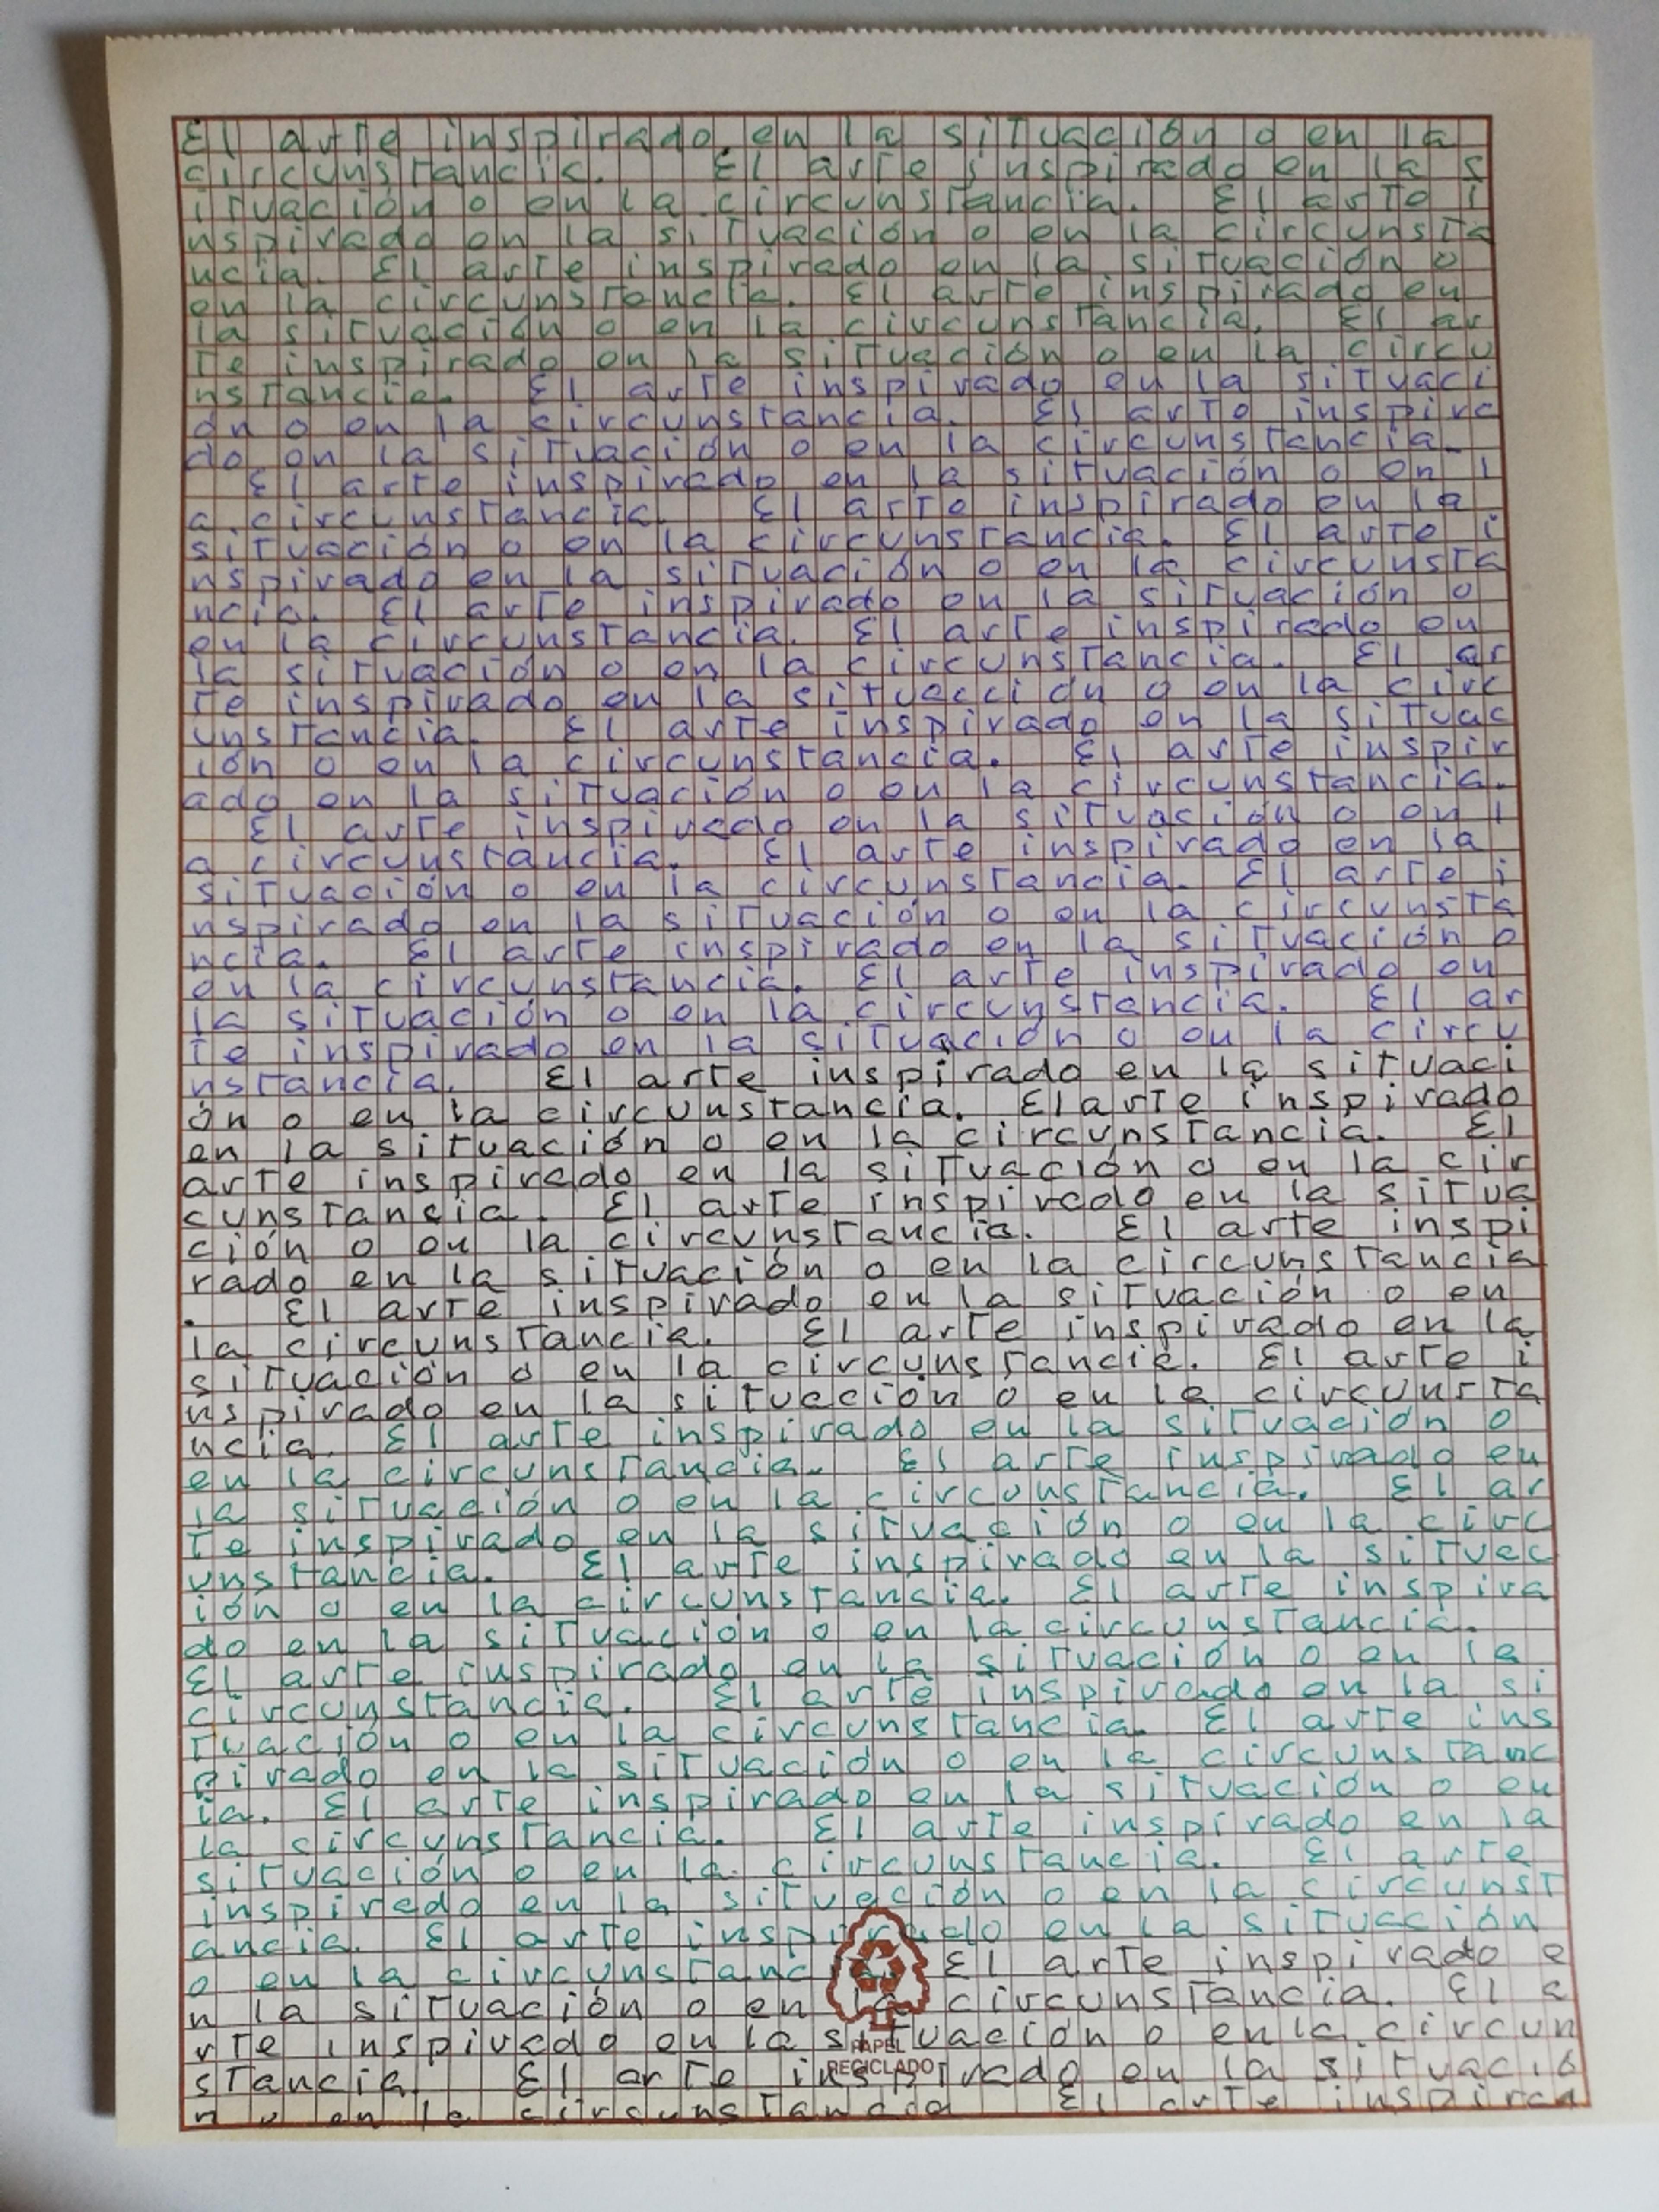 El arte inspirado en la situación o en la
circunstancia. El arte inspirado en la s
ituación o en la circunstancia. El arte i
nspirado en la situación o en la circunsta
ncia. El arte inspirado en la situación o
en la circunstancia. El arte inspirado en
la situación o en la circunstancia. El ar
te inspirado en la situación o en la circu
nstancia. El arte inspirado en la situaci
ón o en la circunstancia. El arte inspira
do en la situación o en la circunstancia.
El arte inspirado en la situación o en l
a circunstancia. El arte inspirado en la
situación o en la circunstancia. El arte i
nspirado en la situación o en la circunsta
ncia. El arte inspirado en la situación o
en la circunstancia. El arte inspirado en
la situación o en la circunstancia. El ar
te inspirado en la situación o en la circ
unstancia. El arte inspirado en la situac
ión o en la circunstancia. El arte inspir
ado en la situación o en la circunstancia.
El arte inspirado en la situación o en l
a circunstancia. El arte inspirado en la
situación o en la circunstancia. El arte i
nspirado en la situación o en la circunsta
ncia. El arte inspirado en la situación o
en la circunstancia. El arte inspirado en
la situación o en la circunstancia. El ar
te inspirado en la situación o en la circu
nstancia. El arte inspirado en la situaci
ón o en la circunstancia. El arte inspirado
en la situación o en la circunstancia. El
arte inspirado en la situación o en la cir
cunstancia. El arte inspirado en la situa
ción o en la circunstancia. El arte inspi
rado en la situación o en la circunstancia
. El arte inspirado en la situación o en
la circunstancia. El arte inspirado en la
situación o en la circunstancia. El arte i
nspirado en la situación o en la circunsta
ncia. El arte inspirado en la situación o
en la circunstancia. El arte inspirado en
la situación o en la circunstancia. El ar
te inspirado en la situación o en la circ
unstancia. El arte inspirado en la situac
ión o en la circunstancia. El arte inspira
do en la situación o en la circunstancia.
El arte inspirado en la situación o en la
circunstancia. El arte inspirado en la si
tuación o en la circunstancia. El arte ins
pirado en la situación o en la circunstanc
ia. El arte inspirado en la situación o en
la circunstancia. El arte inspirado en la
situación o en la circunstancia. El arte
inspirado en la situación o en la circunst
ancia. El arte inspirado en la situación
o en la circunstancia. El arte inspirado e
n la situación o en la circunstancia. El a
rte inspirado en la situación o en la circun
stancia. El arte inspirado en la situació
n o en la circunstancia El arte inspira
PAPEL
RECICLADO